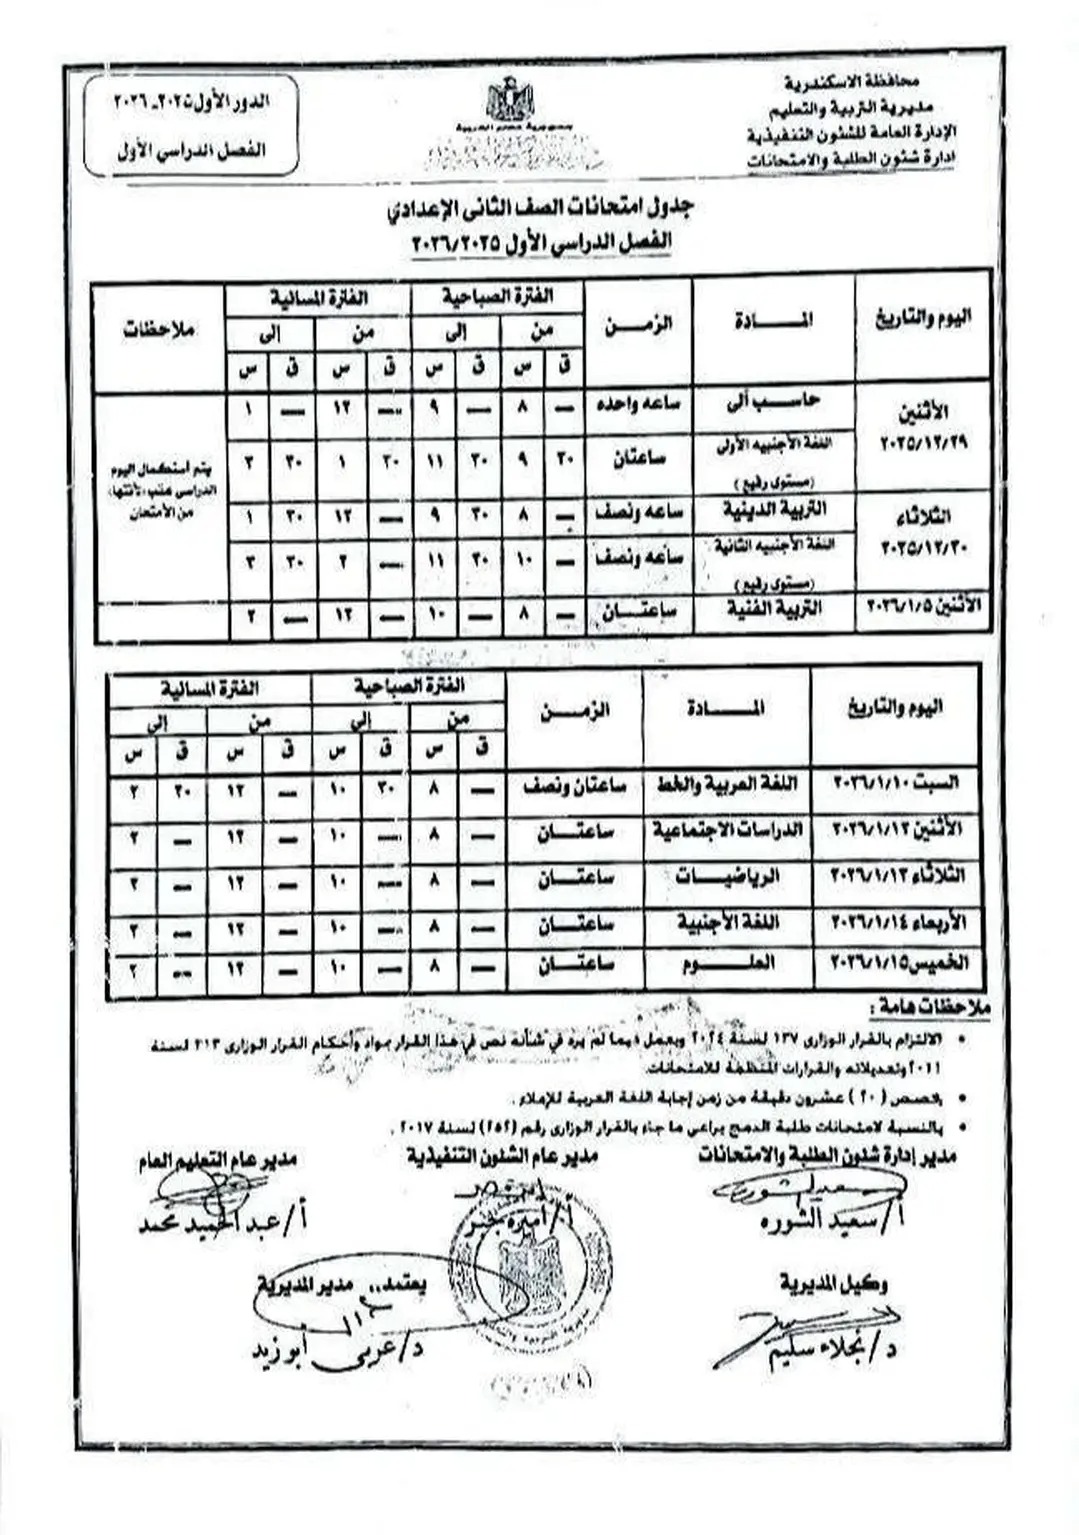 محافظة الاسكندرية
مديرية التربية والتعليم
الإدارة العامة للشئون التنفيذية
ادارة شئون الطلبة والامتحانات
جمهورية مصر العربية
الدور الأول ٢٠٢٥ـ ٢٠٢٦
الفصل الدراسي الأول
جدول امتحانات الصف الثانى الإعدادي
الفصل الدراسي الأول ٢٠٢٦/٢٠٢٥
اليوم والتاريخ المـــــادة الزمـــن الفترة الصباحية الفترة المسائية ملاحظات
من إلى من إلى
ق س ق س ق س ق س
الأثنين ٢٠٢٥/١٢/٢٩ حاسب ألى ساعه واحده — ٨ — ٩ — ١٢ — ١
اللغة الأجنبيه الأولى (مستوى رفيع) ساعتان ٣٠ ٩ ٣٠ ١١ ٣٠ ١ ٣٠ ٣
الثلاثاء ٢٠٢٥/١٢/٣٠ التربية الدينية ساعه ونصف — ٨ ٣٠ ٩ — ١٢ ٣٠ ١
اللغة الأجنبيه الثانية (مستوى رفيع) ساعه ونصف — ١٠ ٣٠ ١١ — ٢ ٣٠ ٣
يتم أستكمال اليوم
الدراسى عقب الأنتهاء
من الأمتحان
الأثنين ٢٠٢٦/١/٥ التربية الفنية ساعتـــان — ٨ — ١٠ — ١٢ — ٢
اليوم والتاريخ المـــــادة الزمـــن الفترة الصباحية الفترة المسائية
من إلى من إلى
ق س ق س ق س ق س
السبت ٢٠٢٦/١/١٠ اللغة العربية والخط ساعتان ونصف — ٨ ٣٠ ١٠ — ١٢ ٣٠ ٢
الأثنين ٢٠٢٦/١/١٢ الدراسات الاجتماعية ساعتـــان — ٨ — ١٠ — ١٢ — ٢
الثلاثاء ٢٠٢٦/١/١٣ الرياضيـــات ساعتـــان — ٨ — ١٠ — ١٢ — ٢
الأربعاء ٢٠٢٦/١/١٤ اللغة الأجنبية ساعتـــان — ٨ — ١٠ — ١٢ — ٢
الخميس ٢٠٢٦/١/١٥ العلـــوم ساعتـــان — ٨ — ١٠ — ١٢ — ٢
ملاحظات هامة :
• الالتزام بالقرار الوزارى ١٣٧ لسنة ٢٠٢٤ ويعمل فيما لم يرد في شأنه نص في هذا القرار بمواد وأحكام القرار الوزارى ٣١٣ لسنة
٢٠١١ وتعديلاته والقرارات المنظمة للامتحانات.
• يخصص (٢٠) عشرون دقيقة من زمن إجابة اللغة العربية للإملاء .
• بالنسبة لامتحانات طلبة الدمج يراعى ما جاء بالقرار الوزارى رقم (٢٥٢) لسنة ٢٠١٧ .
مدير إدارة شئون الطلبة والامتحانات مدير عام الشئون التنفيذية مدير عام التعليم العام
أ/ سعيد الشوره أ/ أميره نصر أ/ عبد الحميد محمد
وكيل المديرية يعتمد.. مدير المديرية
د/ نجلاء سليم د/ عربى أبوزيد